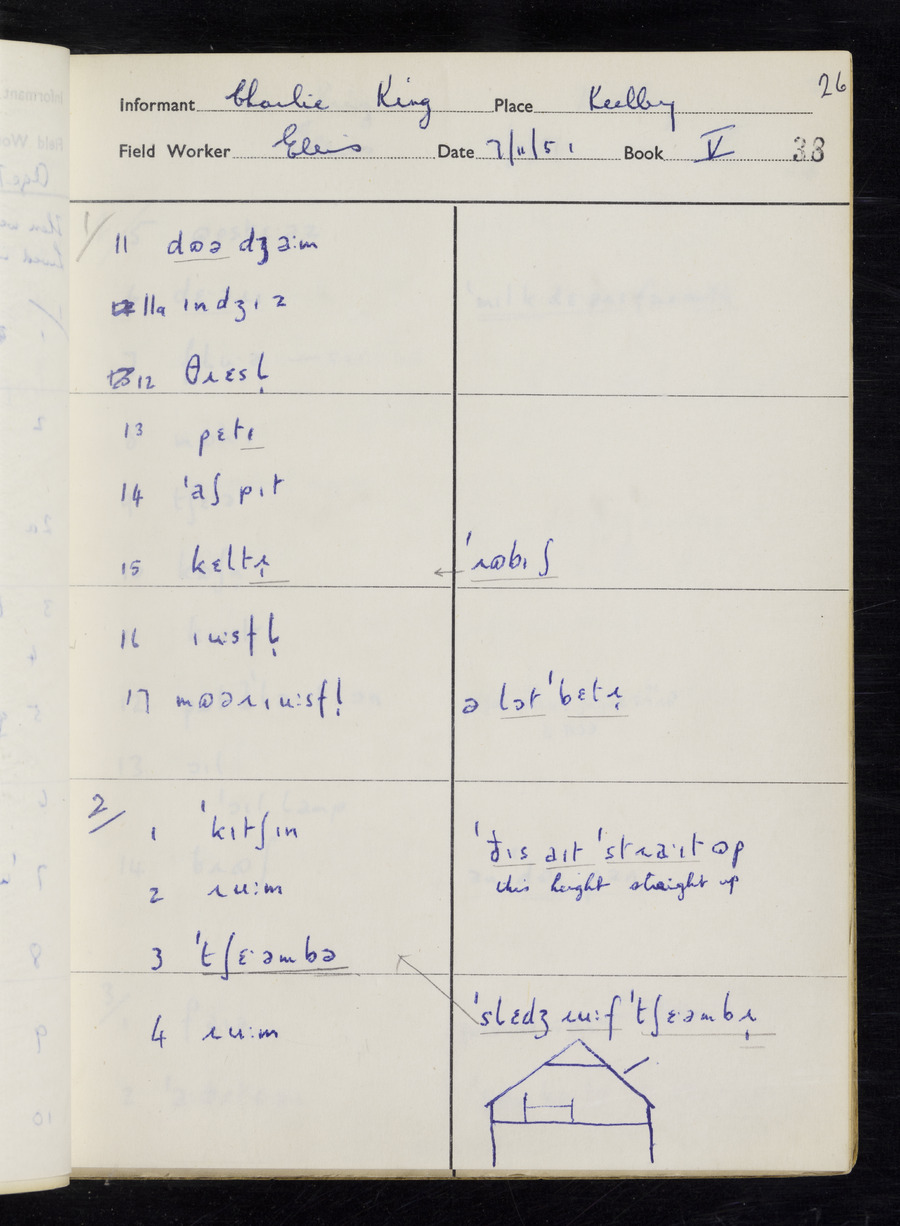 26
Informant Charlie King Place Keelby
Field Worker Ellis Date 7/11/51 Book V 38
1/ 11 dɷə dʒəːm
11a ɪndʒɪz
12 θɹɛsl̩
13 pɛtɪ
14 ˈaʃpɪt
15 kɛltɹ̩ ← ˈɹɷbɪʃ
16 ɪuːsfl̩
17 mɷəɹɪuːsfl̩ ə lɔt ˈbɛtɹ̩
2/ 1 ˈkɪtʃɪn ˈðɪs aɪt ˈstɹaˑɪt ɷp
this height straight up
2 ɹuːm
3 ˈtʃɛːəmbə
4 ɹuːm ˈslɛdʒ ɹuːf ˈtʃɛːəmbɹ̩